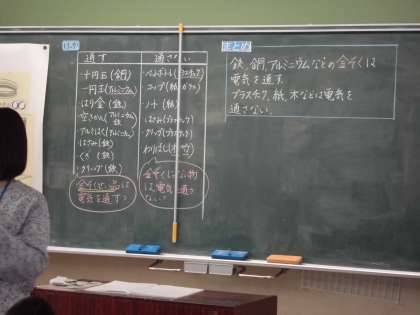 通す
通さない
・十円玉(銅)
・一円玉(アルミニウム)
・はり金(鉄)
・空きかん(アルミニウム 鉄)
・アルミはく(アルミニウム)
・はさみ(鉄)
・くぎ(鉄)
・クリップ(鉄)
金ぞくせい品は
電気を通す?
・ペットボトル(プラスチック)
・コップ(紙 ガラス)
・ノート(紙)
・はさみ(プラスチック)
・クリップ(プラスチック)
・わりばし(木)
金ぞくじゃない物
は、電気を通さ
ない?
まとめ
鉄、銅、アルミニウムなどの金ぞくは
電気を通す。
プラスチック、紙、木などは電気を
通さない。